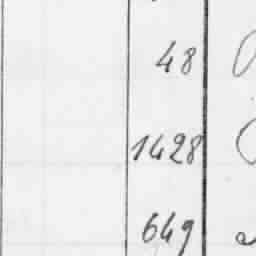 48
1428
649